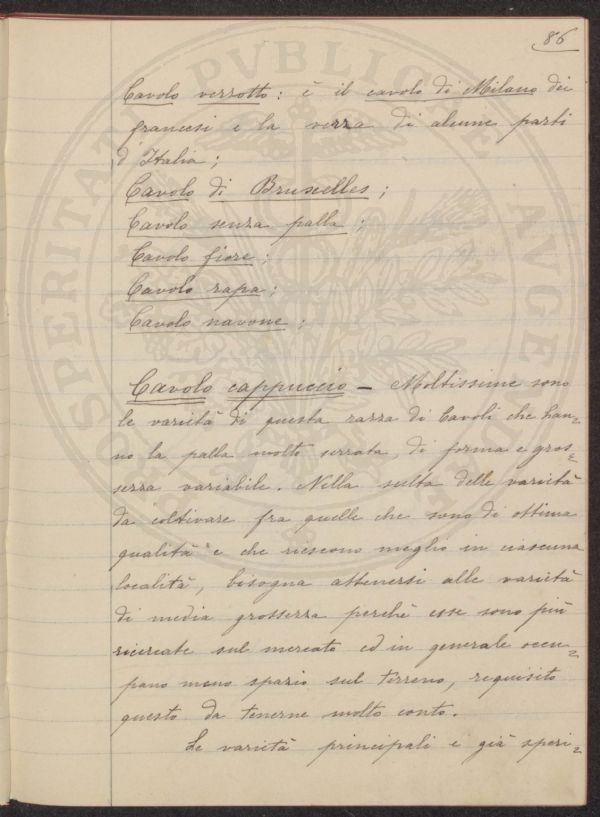 86
Cavolo verzotto: è il cavolo di Milano dei
francesi e la verza di alcune parti
d'Italia;
Cavolo di Bruxelles;
Cavolo senza palla;
Cavolo fiore;
Cavolo rapa;
Cavolo navone;
Cavolo cappuccio — Moltissime sono
le varietà di questa razza di Cavoli che han=
no la palla molto serrata, di forma e gros=
sezza variabile. Nella scelta delle varietà
da coltivare fra quelle che sono di ottima
qualità e che riescono meglio in ciascuna
località, bisogna attenersi alle varietà
di media grossezza perchè esse sono più
ricercate sul mercato ed in generale occu=
pano meno spazio sul terreno, requisito
questo da tenerne molto conto.
Le varietà principali e già speri=
PROSPERITATI PVBLICAE AVGENDAE